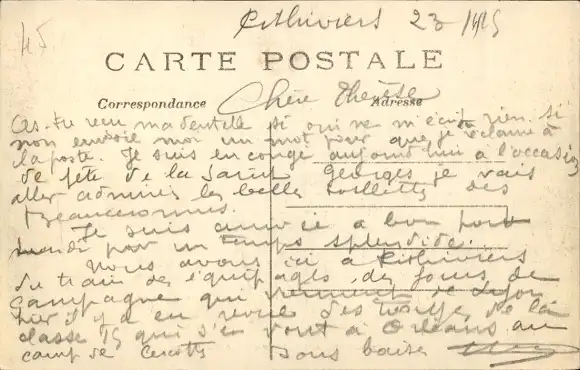 45 Pithiviers 23
CARTE POSTALE
Correspondance Adresse
Chère Thérèse
As-tu reçu ma dentelle si oui ne m'écrit rien si
non envoie moi un mot pour que je réclame à
la poste. Je suis en congé aujourd'hui à l'occasion
de fête de la Saint Georges je vais
aller admirer les belles toilettes des
Beauceronnes.
Je suis arrivée à bon port
par un temps splendide.
Nous avons ici à Pithiviers
du train des équipages des fours de
campagne qui viennent de
hier il y a eu revue des de la
classe 15 qui s'en vont à Orléans au
camp de Cercottes